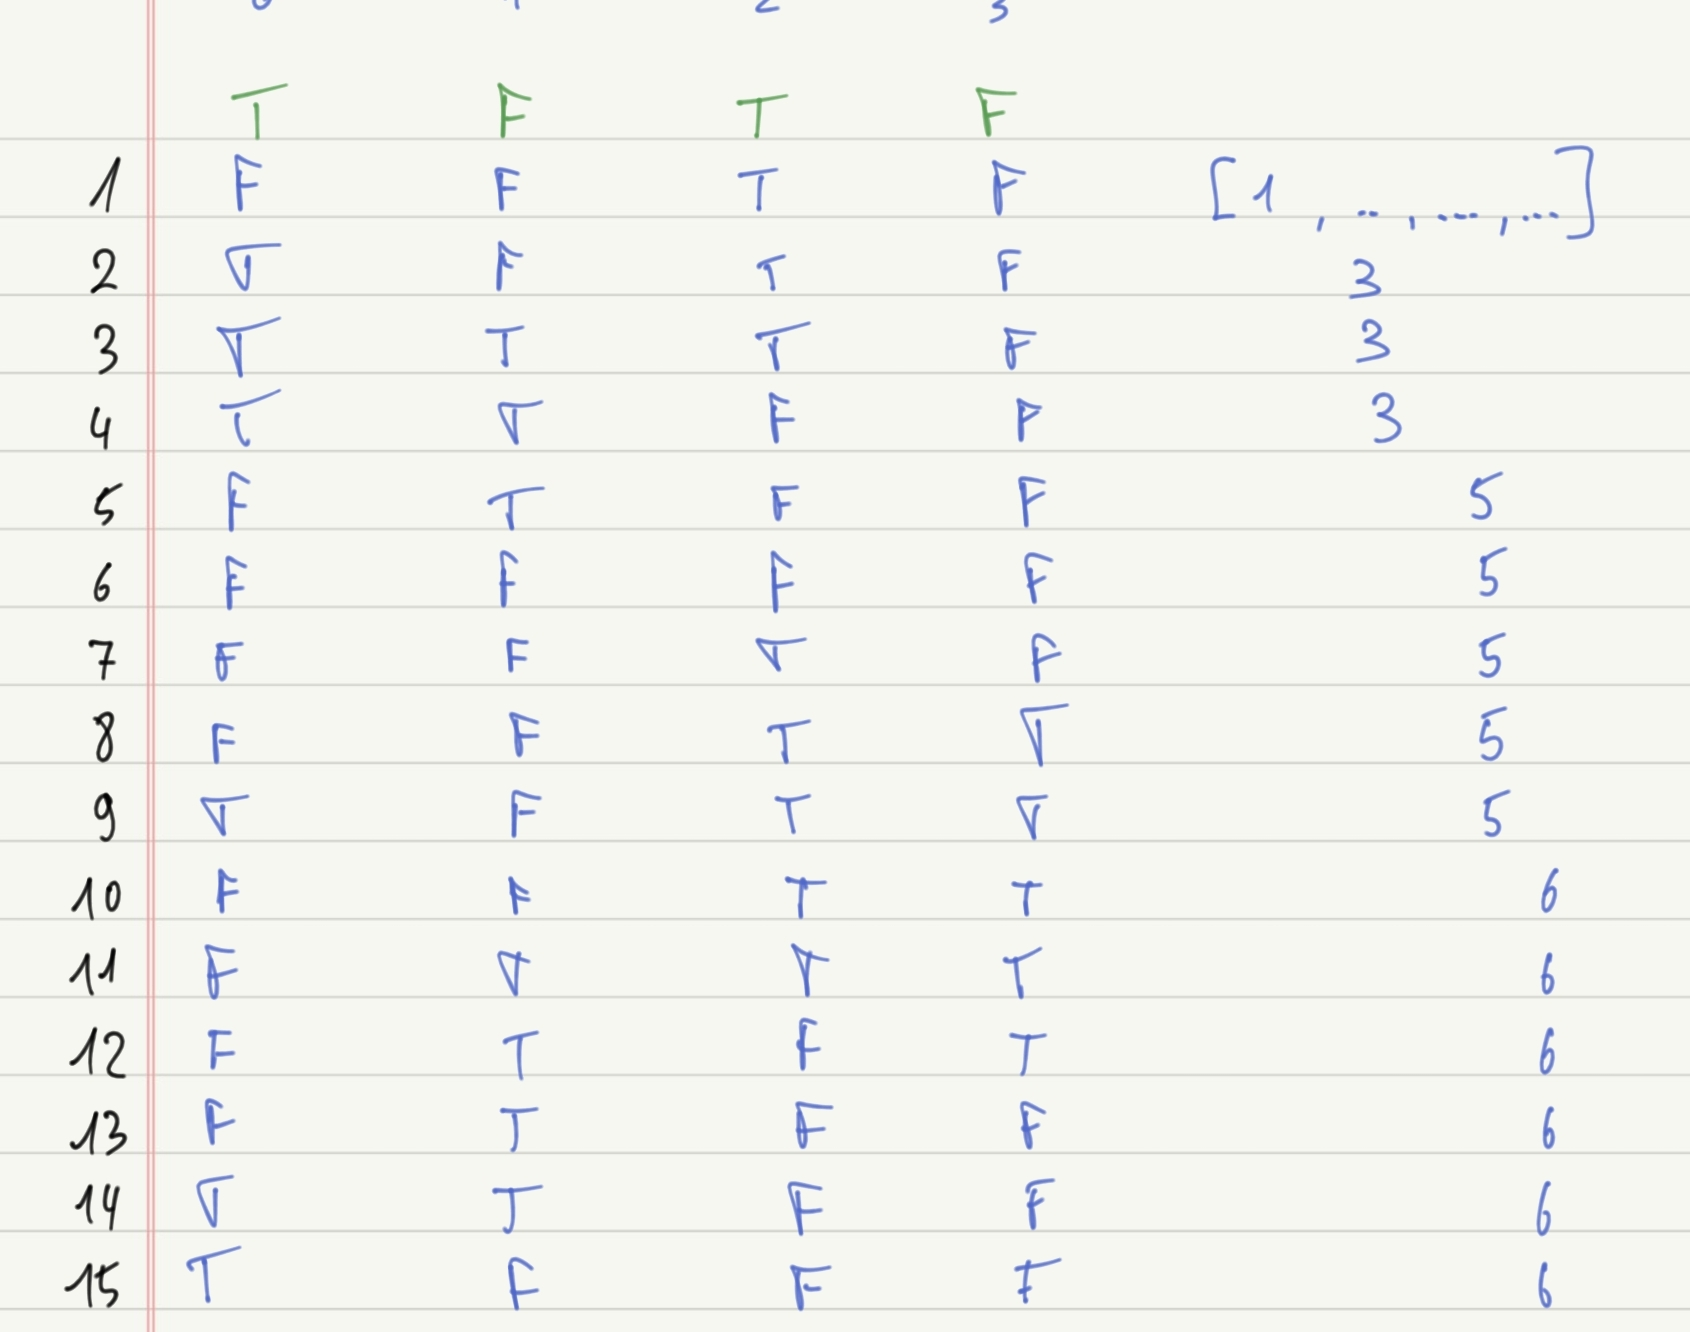 0 1 2 3
T F T F
1 F F T F [1 , .. , ... , ...]
2 T F T F 3
3 T T T F 3
4 T T F F 3
5 F T F F 5
6 F F F F 5
7 F F T F 5
8 F F T T 5
9 T F T T 5
10 F F T T 6
11 F T T T 6
12 F T F T 6
13 F T F F 6
14 T T F F 6
15 T F F F 6